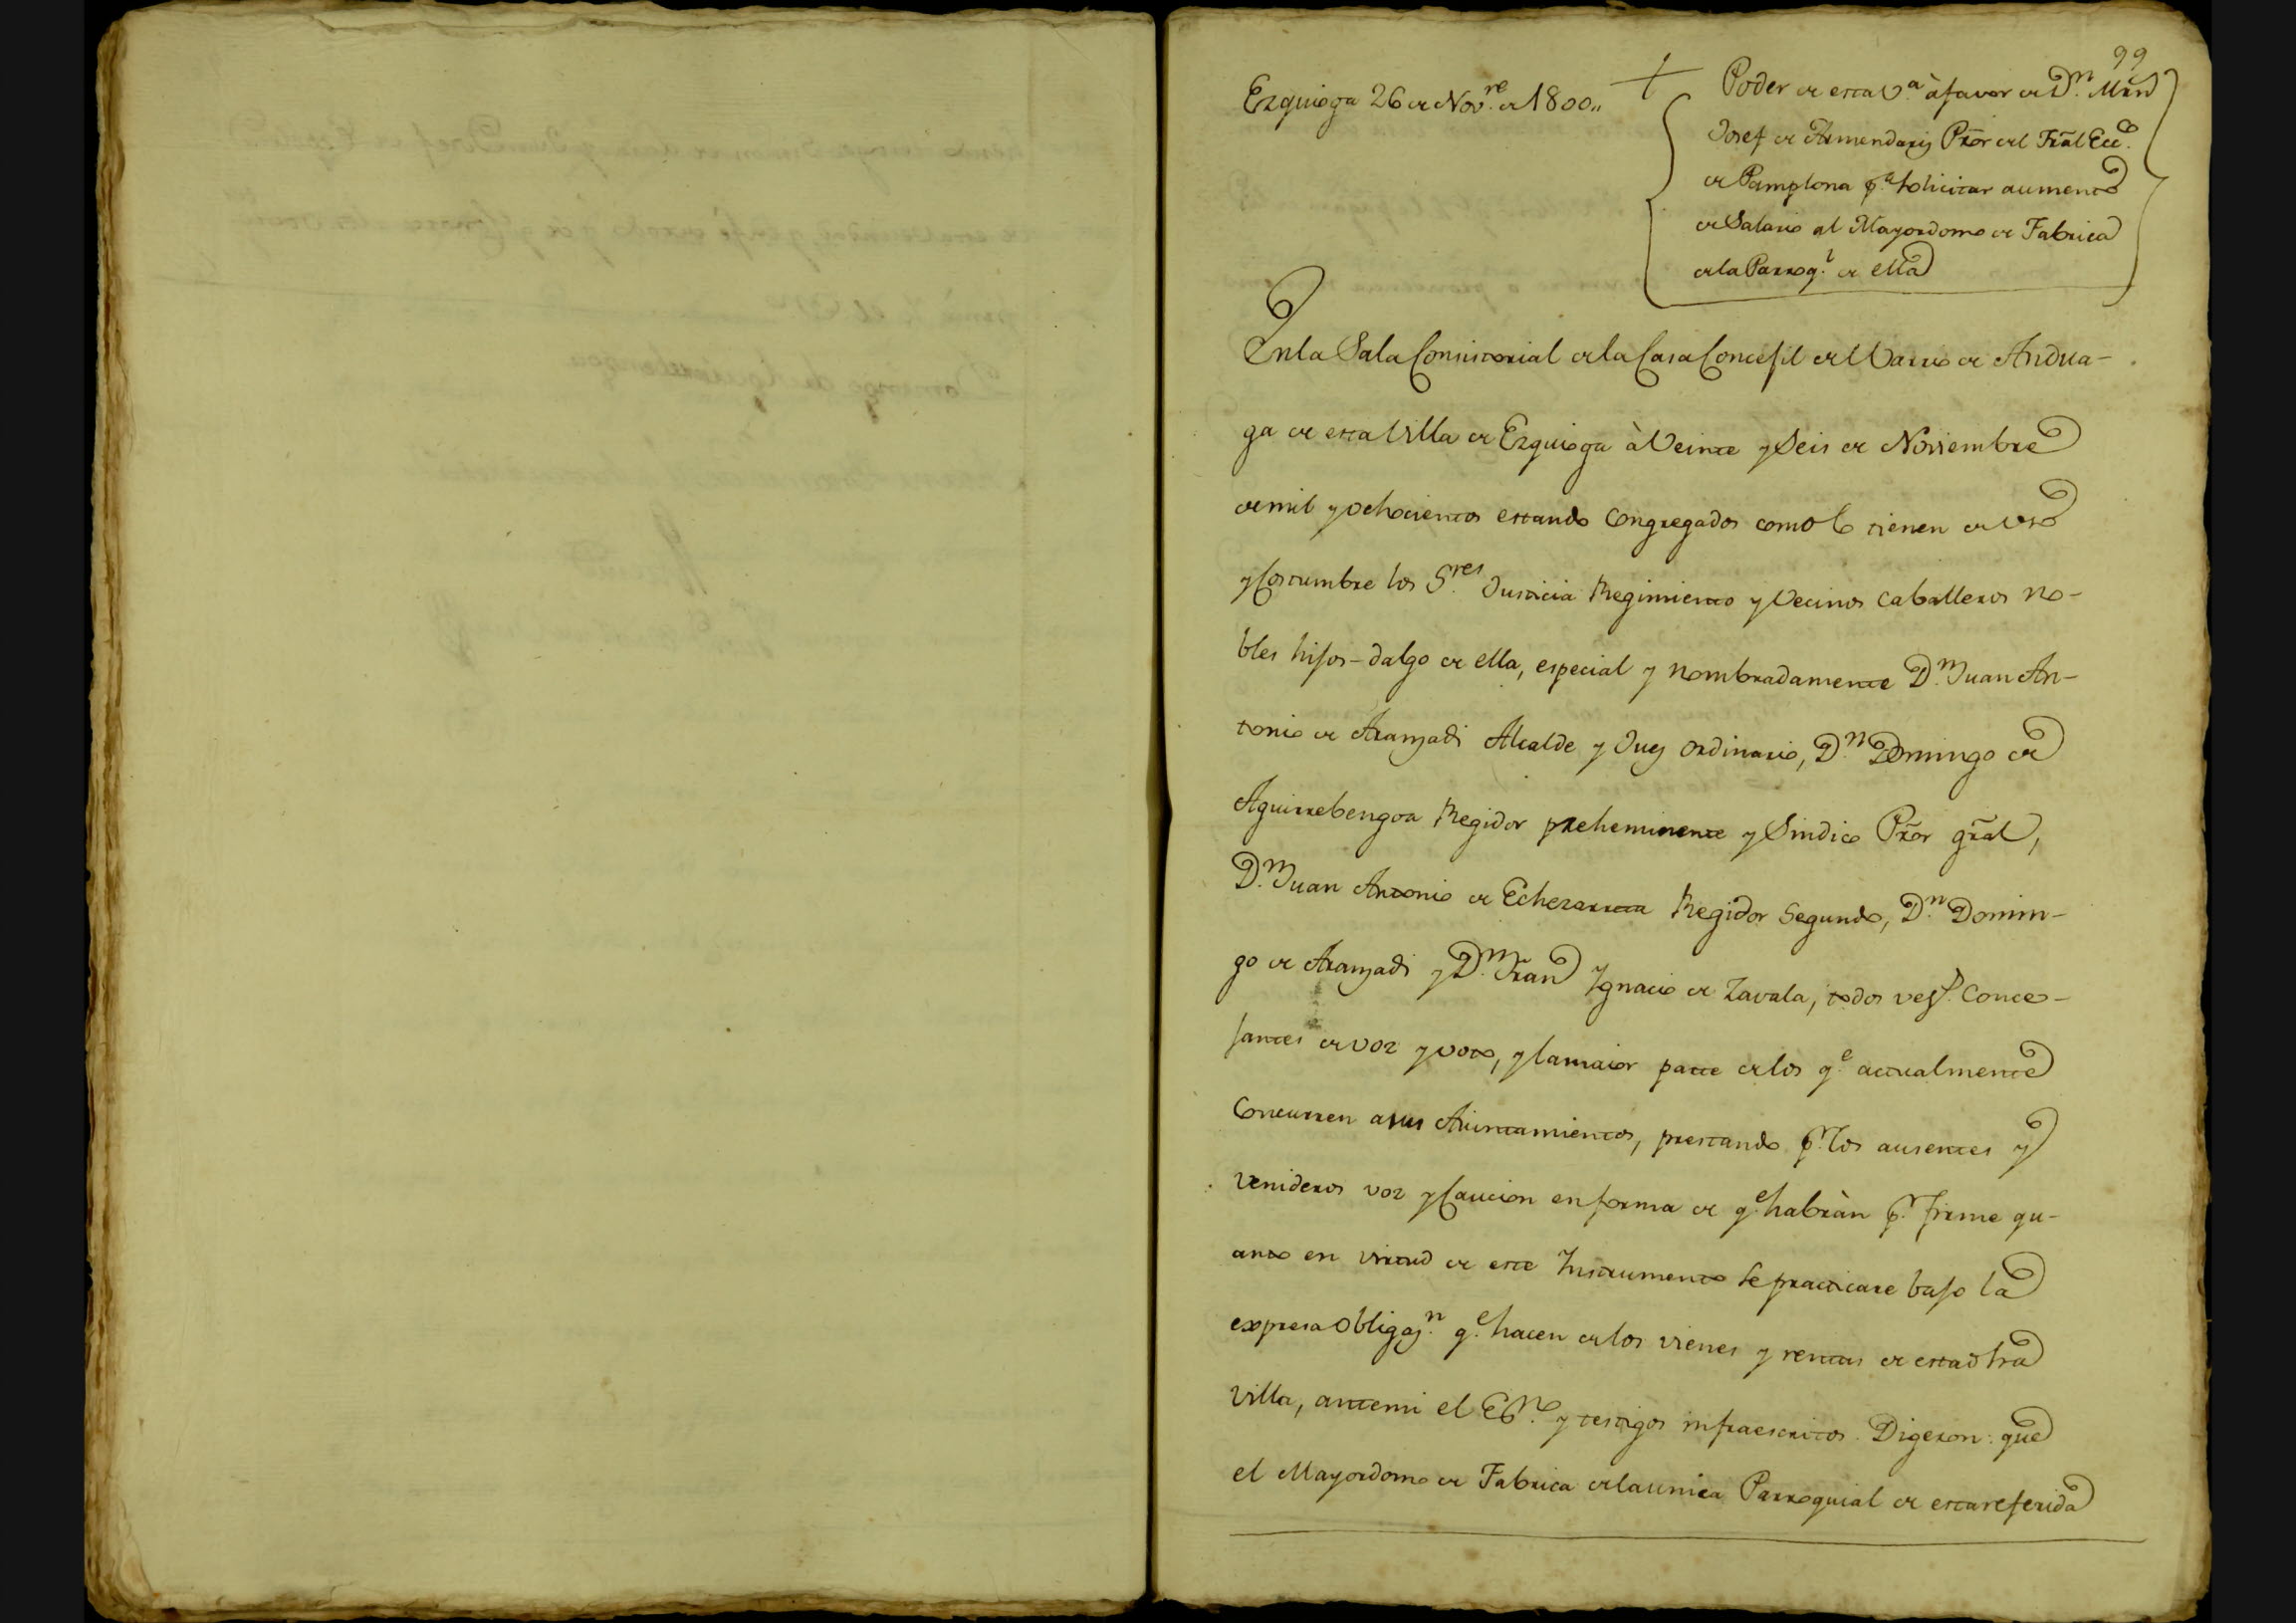 99
Ezquioga 26 de Nov.re de 1800,,
Poder de esta V.a à favor de D.n Mrn
Josef de Armendariz Pror del Tral Ecc.o
de Pamplona p.a solicitar aumento
de Salario al Mayordomo de Fabrica
de la Parroq.l de ella
En la Sala Consistorial de la Casa Concejil del Varrio de Andua-
ga de esta Villa de Ezquioga à Veinte y Seis de Noviembre
de mil y ochocientos estando Congregados como lo tienen de uso
y Costumbre los S.res Justicia Regimiento y Vecinos Caballeros no-
bles hijos-dalgo de ella, especial y nombradamente D.n Juan An-
tonio de Aranzadi Alcalde y Juez ordinario, D.n Domingo de
Aguirrebengoa Regidor preheminente y Sindico Pror gral,
D.n Juan Antonio de Echezarreta Regidor Segundo, D.n Domin-
go de Aranzadi y D.n Fran Ygnacio de Zavala, todos vez.s Conce-
jantes de voz y voto, y la maior parte de los q.e actualmente
Concurren a sus Aiuntamientos, prestando p.r los ausentes y
venideros voz y Caucion en forma de q.e habràn p.r firme qu-
anto en virtud de este Instrumento se practicare bajo la
expresa obligaz.n q.e hacen de los vienes y rentas de esta dhra
villa, ante mi el Es.no y testigos infraescritos. Digeron: que
el Mayordomo de Fabrica de la unica Parroquial de esta referida
Domingo de Aguirrebengoa